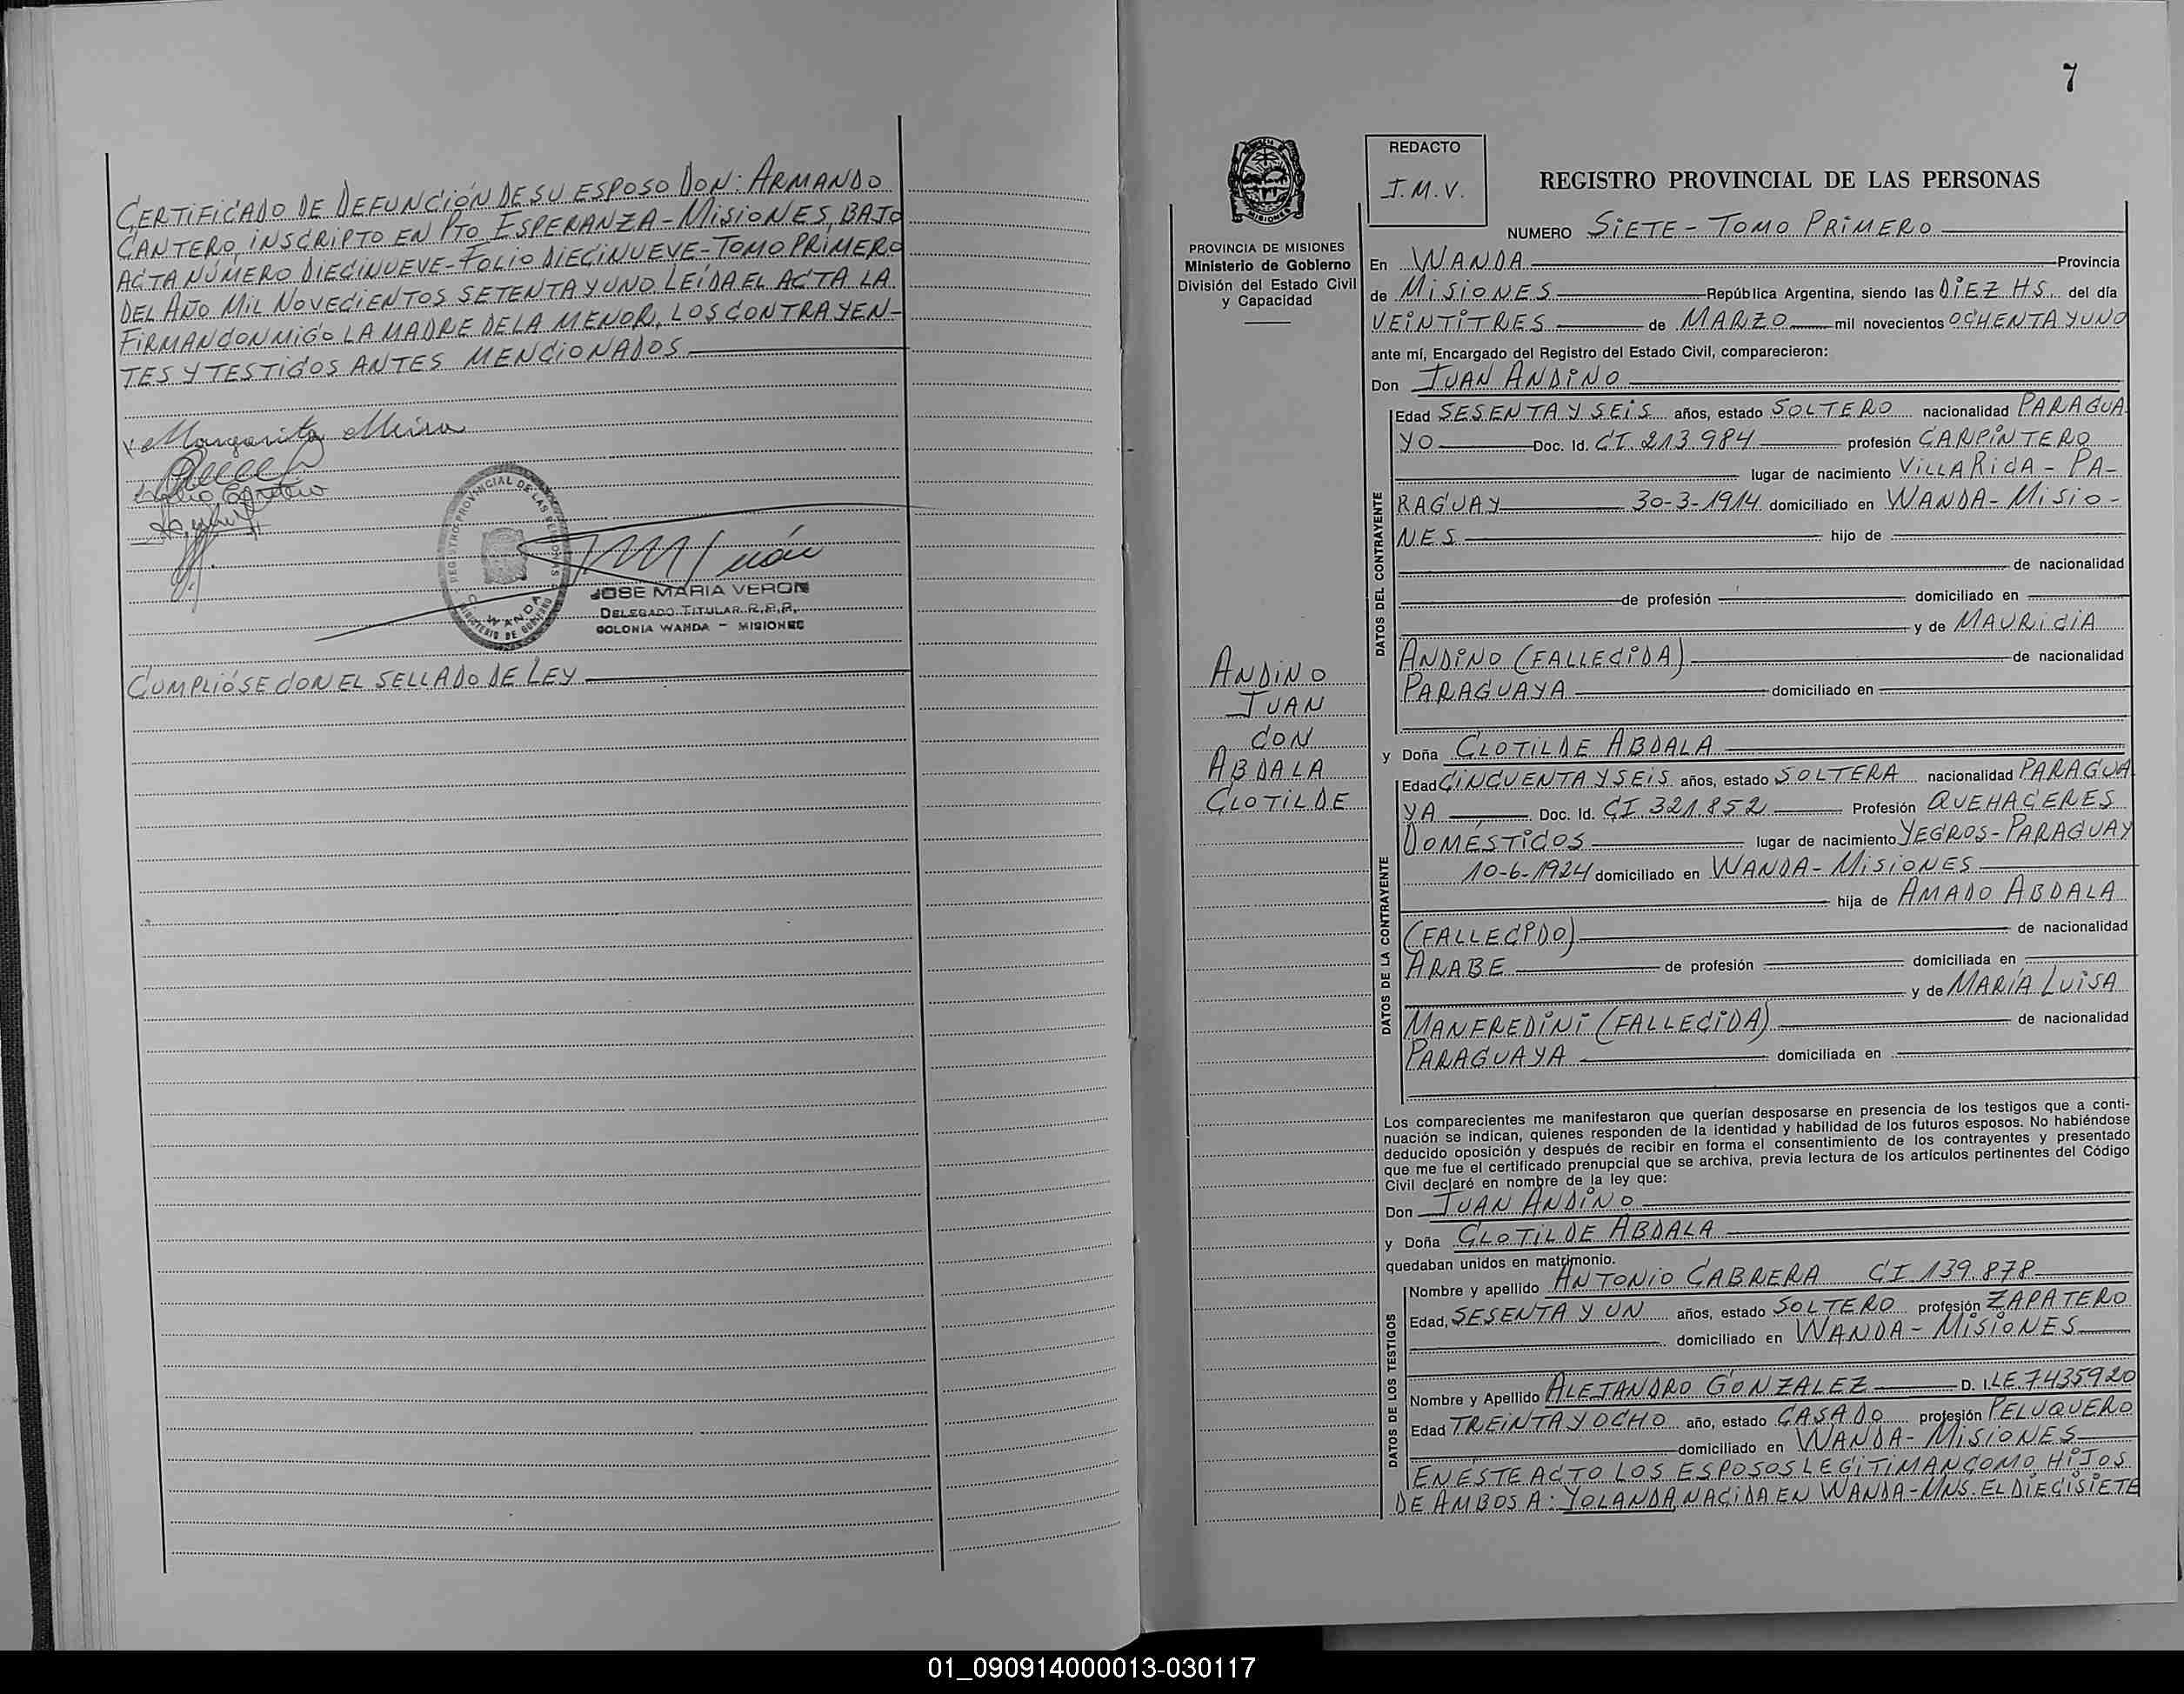 CERTIFICADO DE DEFUNCIÓN DE SU ESPOSO DON: ARMANDO
CANTERO, INSCRIPTO EN PTO ESPERANZA - MISIONES, BAJO
ACTA NÚMERO DIECINUEVE - FOLIO DIECINUEVE - TOMO PRIMERO
DEL AÑO MIL NOVECIENTOS SETENTA Y UNO. LEÍDA EL ACTA LA
FIRMAN CONMIGO LA MADRE DE LA MENOR, LOS CONTRAYEN-
TES Y TESTIGOS ANTES MENCIONADOS.
Margarita
REGISTRO PROVINCIAL DE LAS PERSONAS
WANDA
MINISTERIO DE GOBIERNO
JOSE MARIA VERON
DELEGADO TITULAR R.P.P.
COLONIA WANDA - MISIONES
CUMPLIÓSE CON EL SELLADO DE LEY
7
MISIONES
PROVINCIA DE MISIONES
Ministerio de Gobierno
División del Estado Civil
y Capacidad
ANDINO
JUAN
CON
ABDALA
CLOTILDE
REDACTO
J.M.V.
REGISTRO PROVINCIAL DE LAS PERSONAS
NUMERO SIETE - TOMO PRIMERO
En WANDA Provincia
de MISIONES República Argentina, siendo las DIEZ HS. del día
VEINTITRES de MARZO mil novecientos OCHENTA Y UNO
ante mí, Encargado del Registro del Estado Civil, comparecieron:
Don JUAN ANDINO
DATOS DEL CONTRAYENTE
Edad SESENTA Y SEIS años, estado SOLTERO nacionalidad PARAGUA
YO Doc. Id. CI. 213.984 profesión CARPINTERO
lugar de nacimiento VILLA RICA - PA-
RAGUAY 30-3-1914 domiciliado en WANDA - MISIO-
NES hijo de
de nacionalidad
de profesión domiciliado en
y de MAURICIA
ANDINO (FALLECIDA) de nacionalidad
PARAGUAYA domiciliado en
y Doña CLOTILDE ABDALA
DATOS DE LA CONTRAYENTE
Edad CINCUENTA Y SEIS años, estado SOLTERA nacionalidad PARAGUA
YA Doc. Id. CI 321.852 Profesión QUEHACERES
DOMÉSTICOS lugar de nacimiento YEGROS - PARAGUAY
10-6-1924 domiciliado en WANDA - MISIONES
hija de AMADO ABDALA
(FALLECIDO) de nacionalidad
ARABE de profesión domiciliada en
y de MARÍA LUISA
MANFREDINI (FALLECIDA) de nacionalidad
PARAGUAYA domiciliada en
Los comparecientes me manifestaron que querían desposarse en presencia de los testigos que a conti-
nuación se indican, quienes responden de la identidad y habilidad de los futuros esposos. No habiéndose
deducido oposición y después de recibir en forma el consentimiento de los contrayentes y presentado
que me fue el certificado prenupcial que se archiva, previa lectura de los artículos pertinentes del Código
Civil declaré en nombre de la ley que:
Don JUAN ANDINO
y Doña CLOTILDE ABDALA
quedaban unidos en matrimonio.
DATOS DE LOS TESTIGOS
Nombre y apellido ANTONIO CABRERA CI 139.878
Edad, SESENTA Y UN años, estado SOLTERO profesión ZAPATERO
domiciliado en WANDA - MISIONES
Nombre y Apellido ALEJANDRO GONZALEZ D. I. LE 7435920
Edad TREINTA Y OCHO año, estado CASADO profesión PELUQUERO
domiciliado en WANDA - MISIONES
EN ÉSTE ACTO LOS ESPOSOS LEGITIMAN COMO HIJOS
DE AMBOS A: YOLANDA, NACIDA EN WANDA - MNS. EL DIECISIETE
01_090914000013-030117